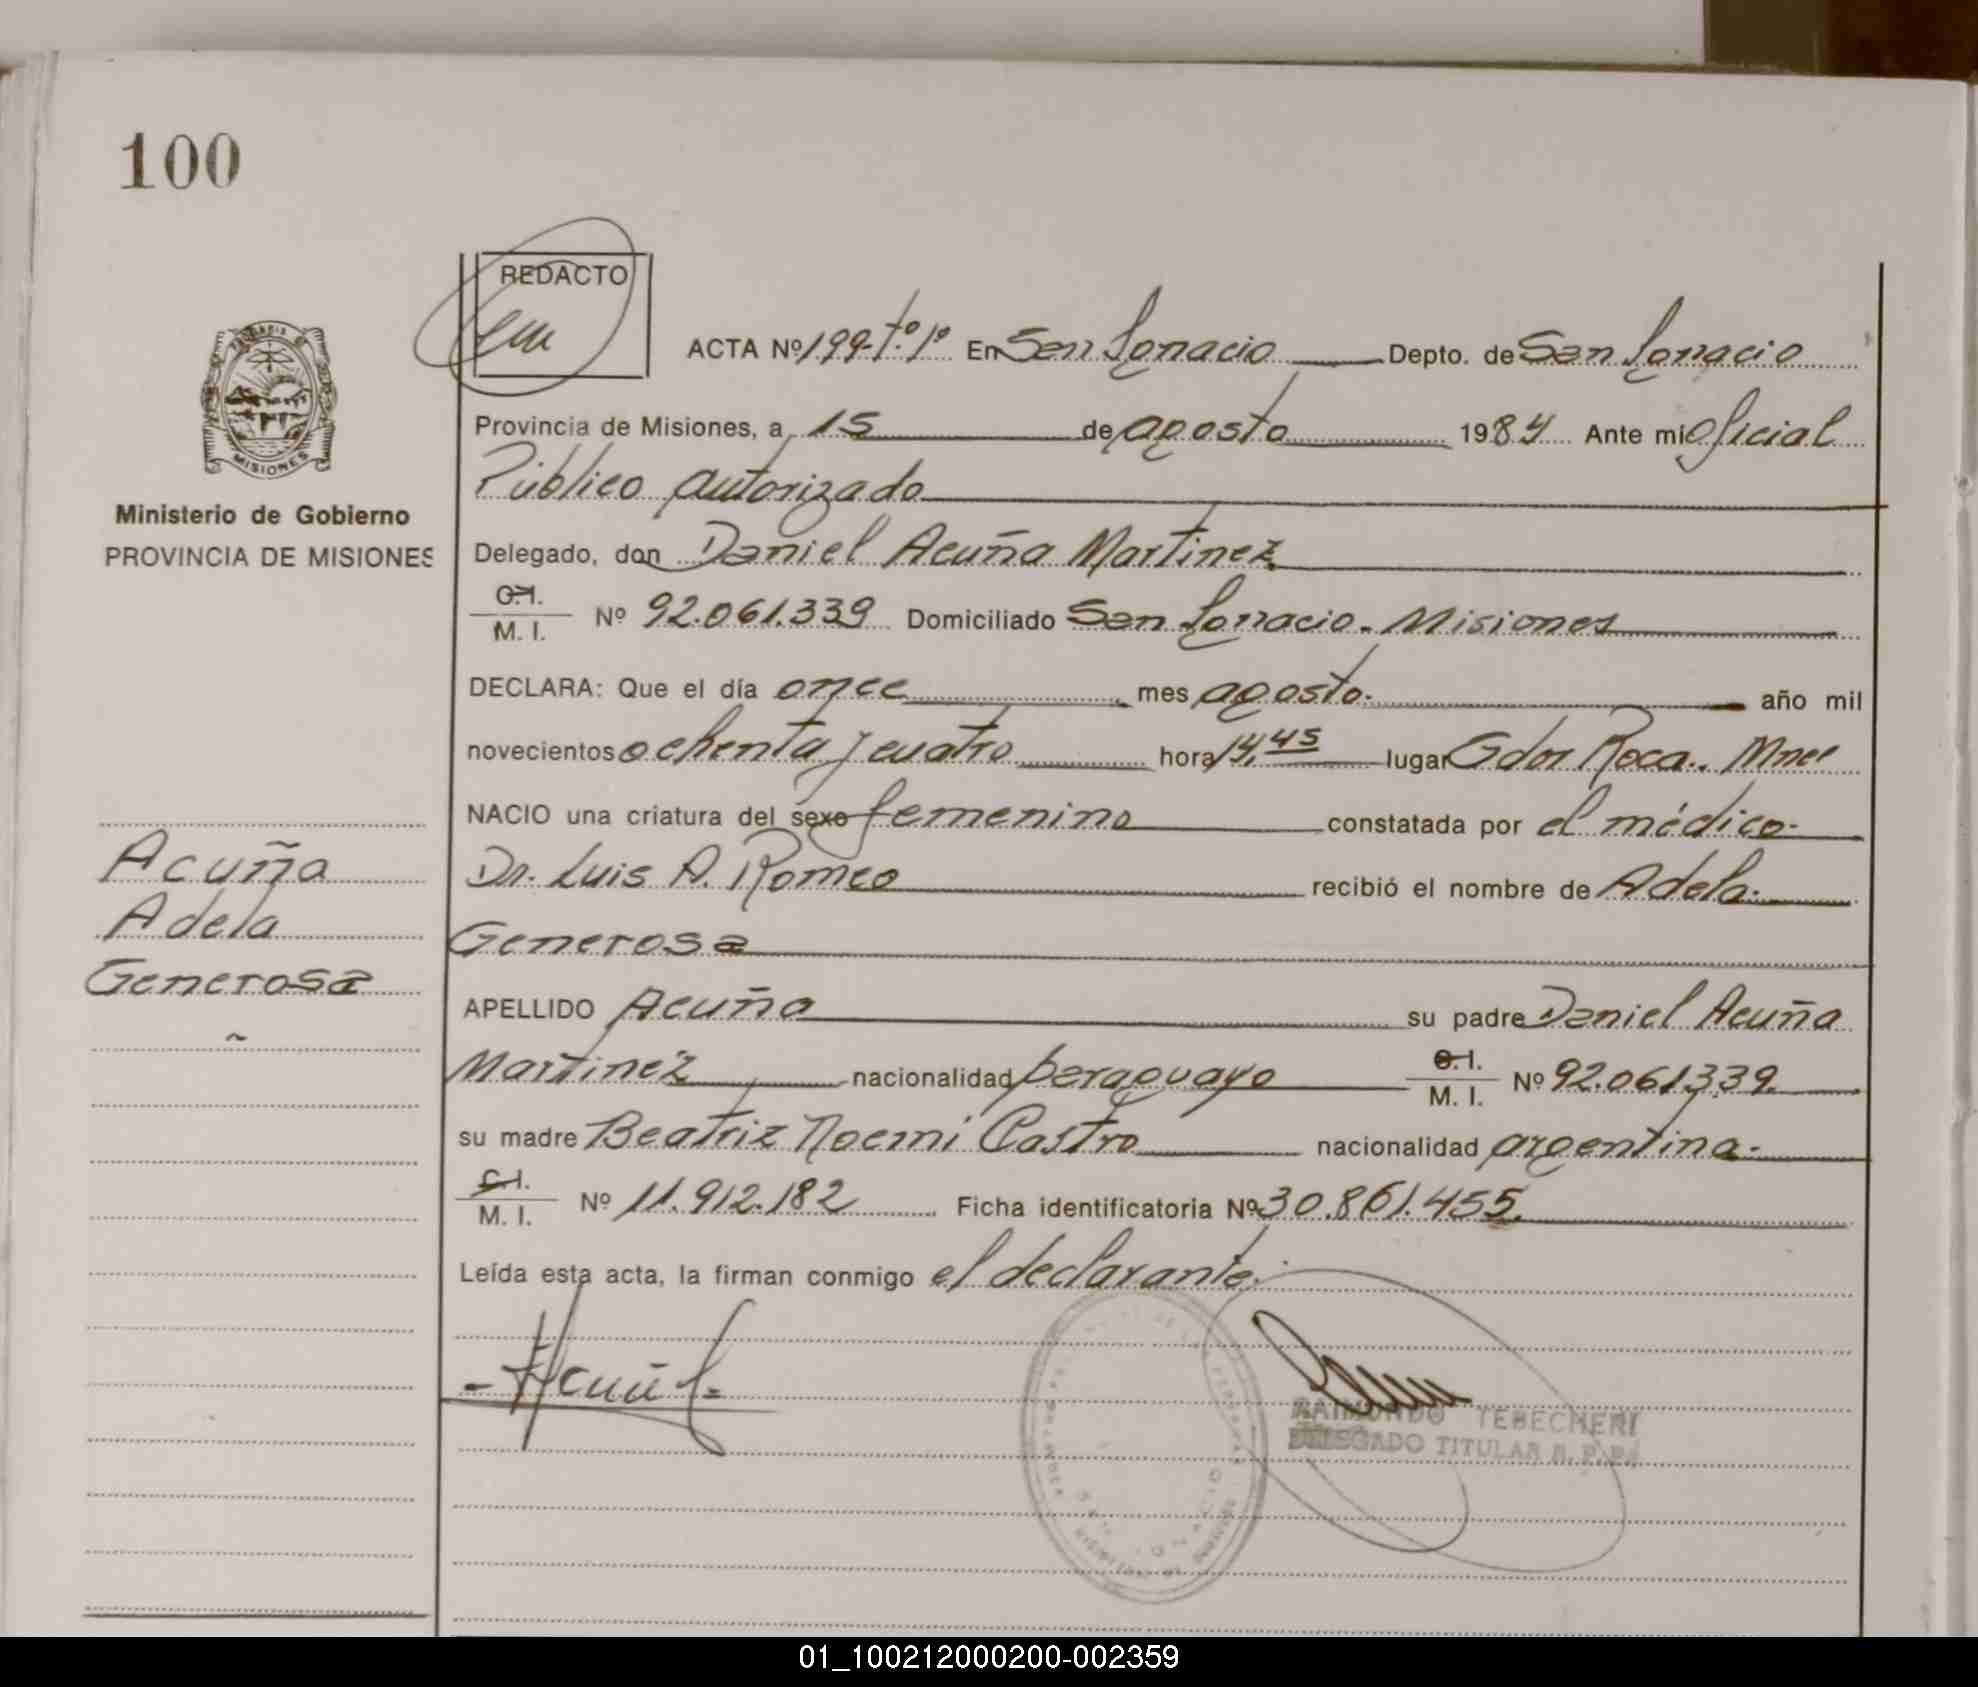 100
REDACTO
ACTA Nº 199-Tº 1º En San Ignacio Depto. de San Ignacio
Provincia de Misiones, a 15 de agosto 1984 Ante mi Oficial
Público autorizado
Delegado, don Daniel Acuña Martinez
C.I. M.I. Nº 92.061.339 Domiciliado San Ignacio. Misiones
DECLARA: Que el día once mes agosto. año mil
novecientos ochenta y cuatro hora 14,45 lugar Gdor Roca. Mnes
NACIO una criatura del sexo femenino constatada por el médico
Dr. Luis A. Romeo recibió el nombre de Adela
Generosa
APELLIDO Acuña su padre Daniel Acuña
Martinez nacionalidad paraguayo C.I. M.I. Nº 92.061.339
su madre Beatriz Noemi Castro nacionalidad argentina
C.I. M.I. Nº 11.912.182 Ficha identificatoria Nº 30.861.455.
Leída esta acta, la firman conmigo el declarante.
RAIMUNDO TEBECHERI
DELEGADO TITULAR R.P.P.
SAN IGNACIO
MISIONES
Ministerio de Gobierno
PROVINCIA DE MISIONES
Acuña
Adela
Generosa
01_100212000200-002359